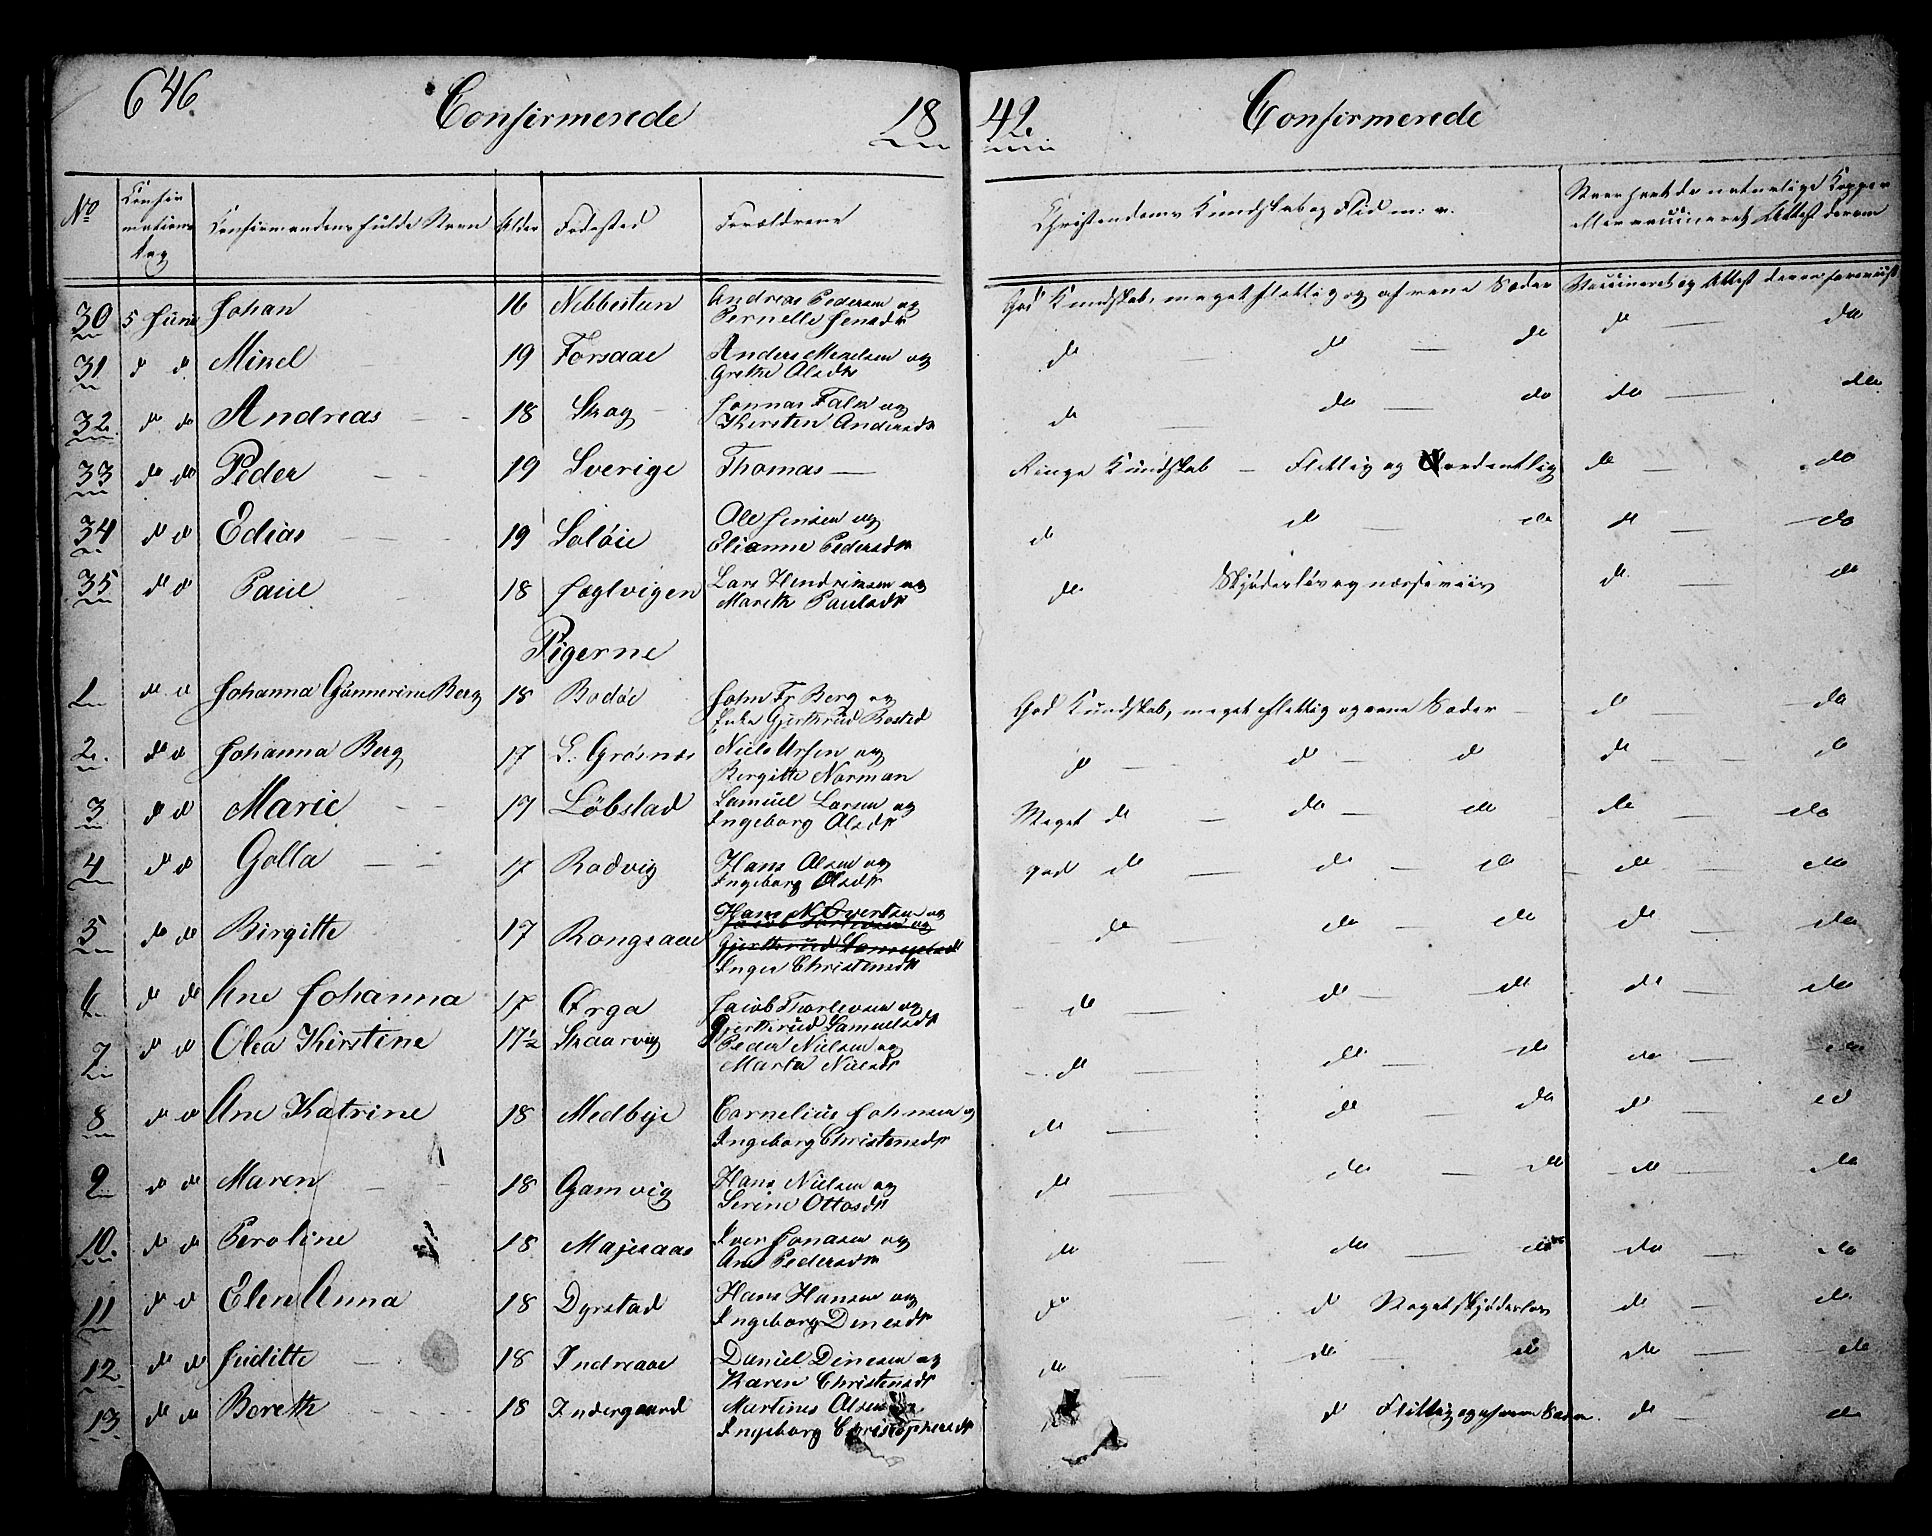 646
Confirmerede 18 42 Confirmerede
No Confirmations Dag Confirmandens fulde Navn Alder Fødested Forældrene Christendoms Kundskab og Flid m: v. Naar havt de naturlige Kopper eller vaccineret, Attest derom
30 5 Juni Johan 16 Nebbestun Andreas Pedersen og Pernelle Jensdr God Kundskab, meget flittig og af rene Sæder Vaccineret og Attest derom foreviist
31 d d Minel 19 Forsaae Anders Menelsen og Grethe Olsdr do — do — do do — do
32 do do Andreas 18 Skog Jonnas Falk og Kiersten Andersdr do — do — do do — do
33 do do Peder 19 Sverige Thomas — Ringe Kundskab — Flittig og ordentlig do — do
34 do d Edias 19 Soløie Ole Jensen og Elianne Pedersdr do do — do do — do
35 do d Paul 18 Fuglvigen Lars Hendriksen og Marith Paulsdr do Skjødesløs og næsseviis do — do
Pigerne
1 do d Johanna Gunnerine Berg 18 Bodøe John Fr Berg og Gjertrud Rosted God Kundskab, meget flittig og rene Sæder do — do
2 do d Johanna Berg 17 L. Grøsnæs Niels Ursin og Bergitte Norman do — do — d do — do
3 do d Marie 17 Løbstad Samuel Larsen og Ingeborg Olsdr Meget do — do — do do — do
4 do d Golla 17 Rodvig Hans Olsen og Ingeborg Olsdr god do — do — do do — do
5 do do Birgitte 17 Rongsaae Hans N Overtsen og Inger Christensdr do — do — do do — do
6 do do Ane Johanna 17 Ørga Jacob Thorlevsen og Gjertrud Samuelsdr do — do — do do — do
7 do do Olea Kirstine 17½ Skaarvig Peder Nielsen og Marta Nilsdr do — do — do do — do
8 do d Ane Katrine 18 Medbye Cornelius Johnsen og Ingeborg Christensdr do — do — do do — do
9 do do Maren 18 Gamvig Hans Nielsen og Serine Ottosdr do — do — do do — do
10. do do Peroline 18 Majesaae Iver Jonasen og Ane Pedersdr do do — do do — do
11 do d Elen Anna 18 Dyrstad Hans Hansen og Ingeborg Dinesdr do d Meget skjødesløs do — do
12 do do Juditte 18 Indreaae Daniel Dinesen og Karen Christensdr do — do — do do — do
13 do do Bereth 18 Indergaard Martines Olsen og Ingeborg Christophersdr d Flittig og af rene Sæder. do — do